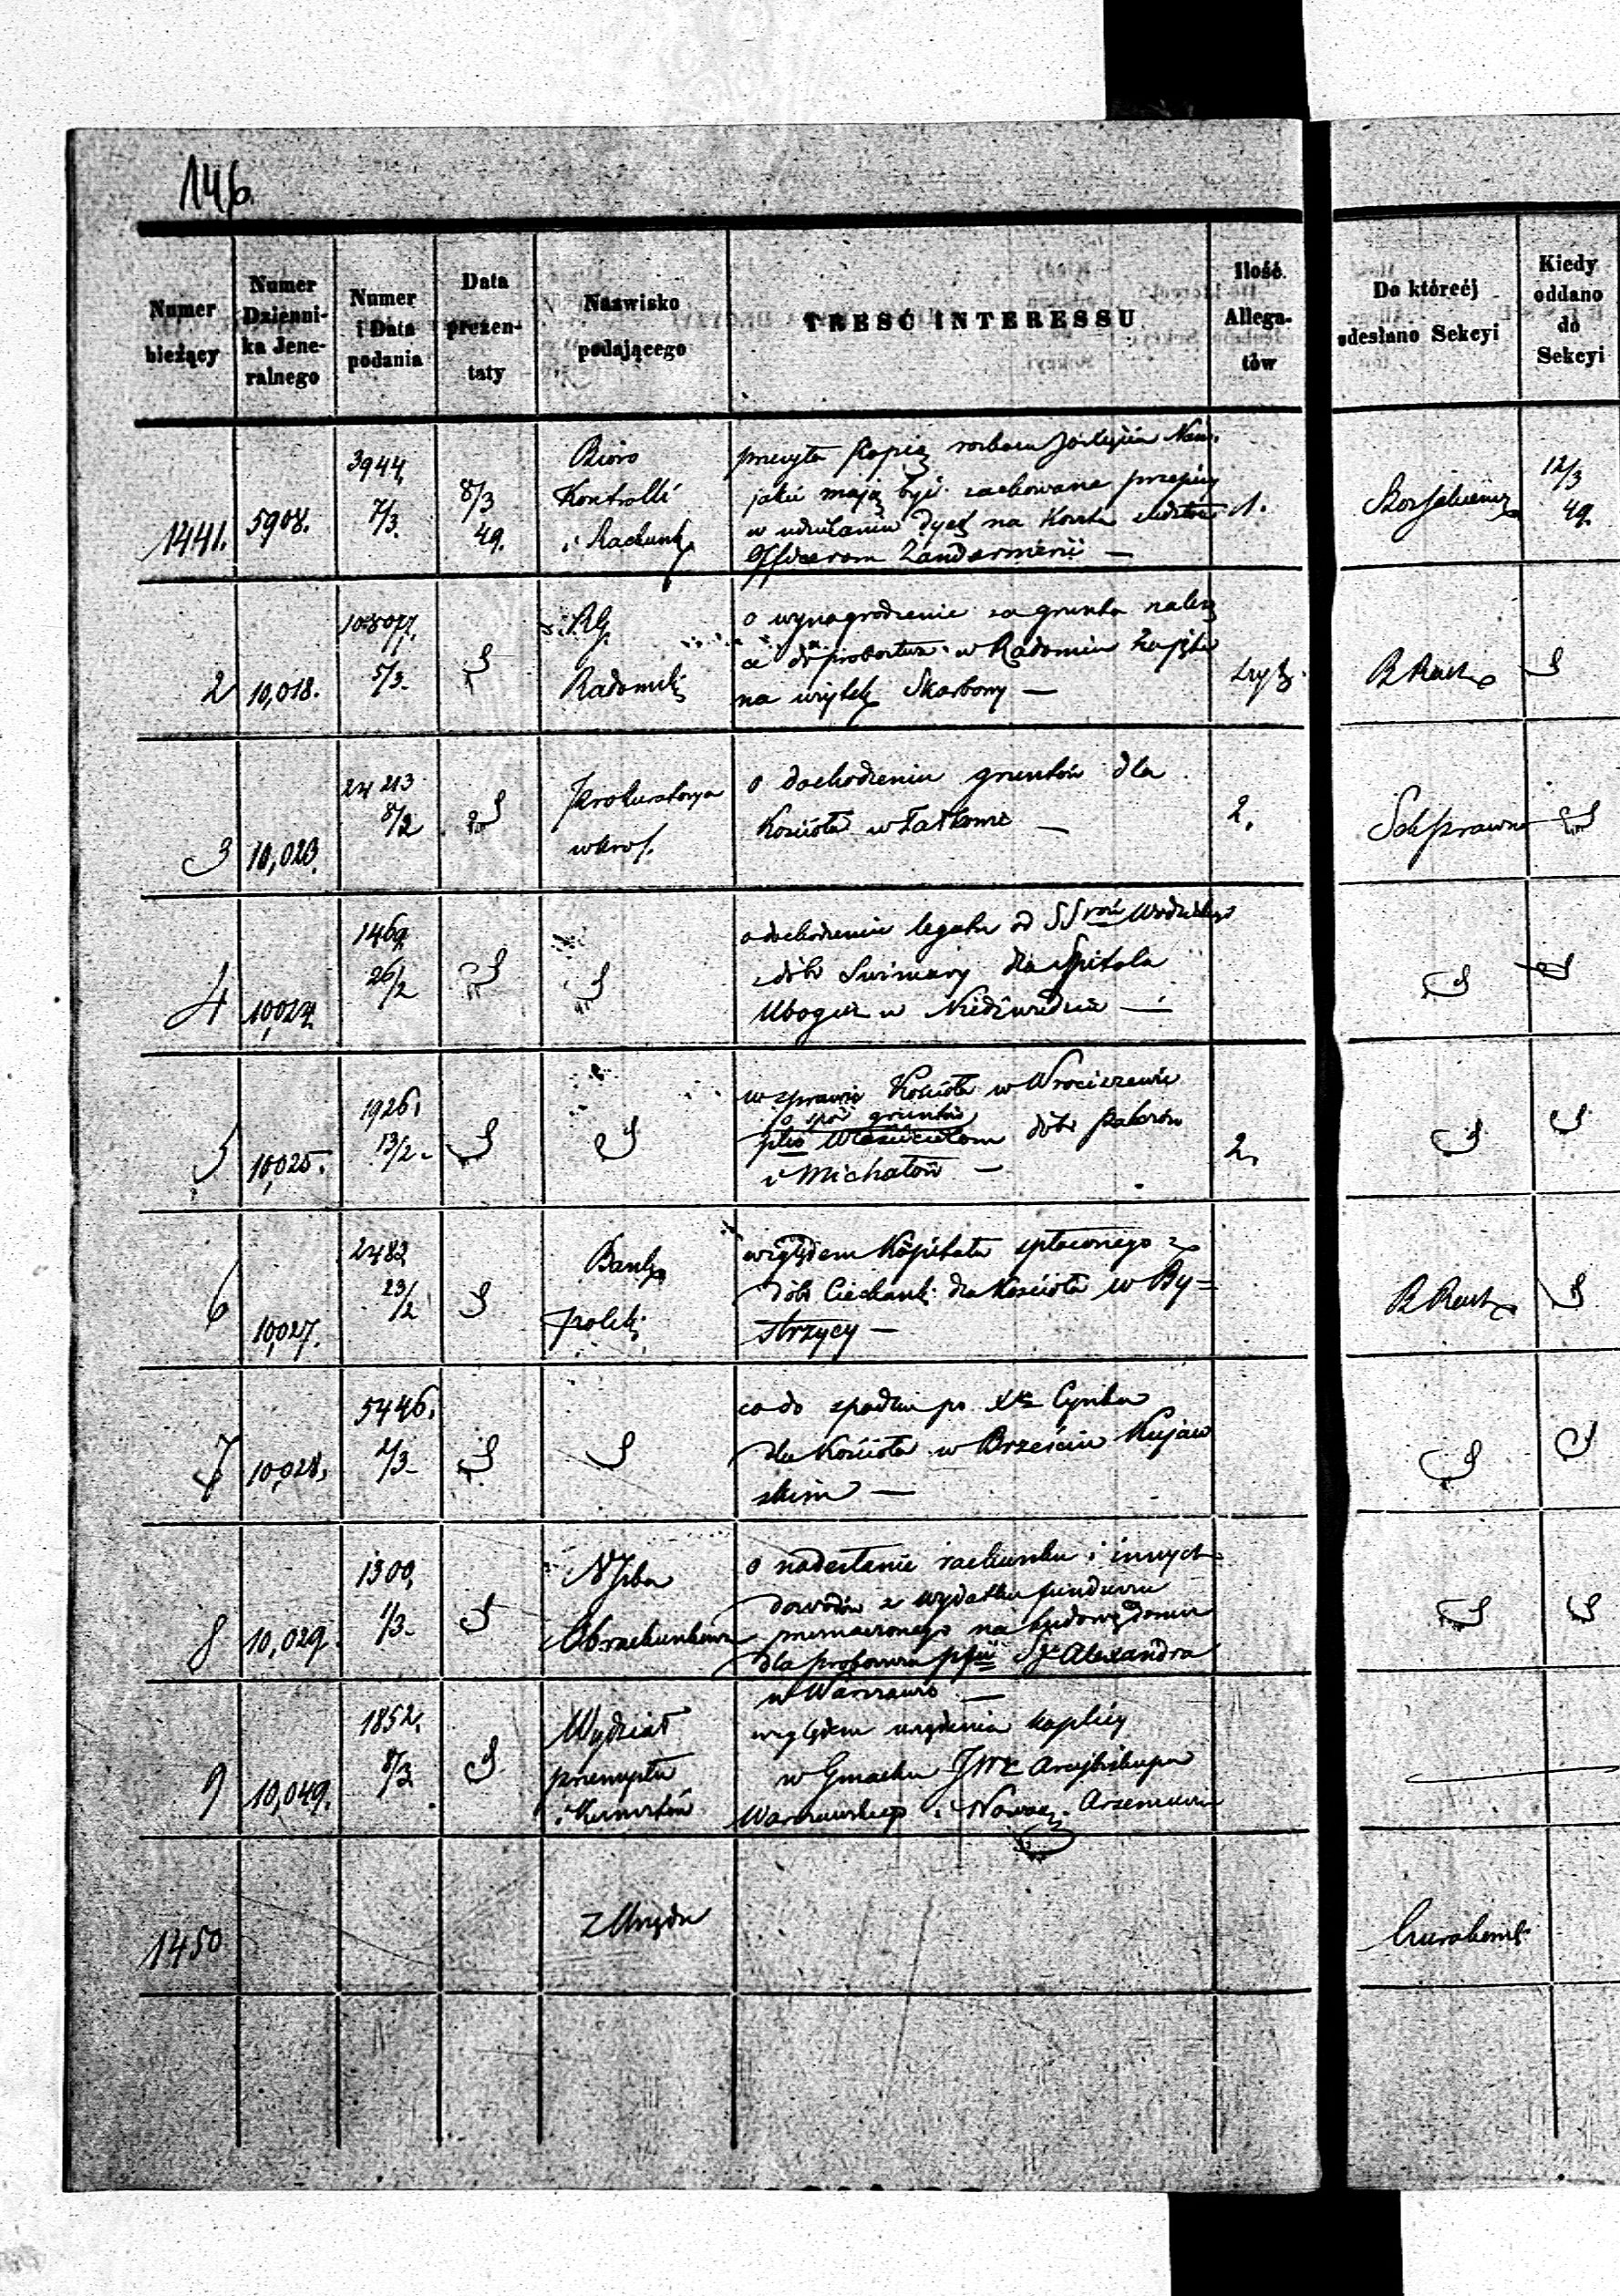 146.
Numer bieżący
Numer Dzienni-ka Jene-ralnego
Numer i Data podania
Data prezen-taty
Nazwisko podającego
TREŚĆ INTERESSU
Ilość Allega-tów
Do któreéj odesłano Sekcyi
Kiedy oddano do Sekcyi
1441. 5908. 3944 7/3. 8/3 49.
Bióro
Kontrolli
i Rachunk
przesyła Kopią
jakie mają być zachowane przepisy
w udzielaniu dyet na koszta
Officerom Żandarmerii —
1.
12/3 49.
2 10,018. 5/3.
RG.
Radomski
o wynagrodzenie za grunta należą
ce do probostwa w Radomiu zajęte
na użytek Skarbowy —
3 10,023. 24213 8/2
Prokuratorya
w Król.
o dochodzeniu gruntów dla
Kościoła w
2.
Sek Prawna
4 10,024. 1469 26/2
o dochodzenie legatu od SSrów Wodzickiego
z dóbr dla Szpitala
Ubogich w Niedźwiedziu —
5 10,025. 1926. 13/2.
w sprawie Kościoła w Wrociszewie
o spór gruntów
plko Właścicielom dóbr
i Michałów —
2.
6 10,027. 2482 23/2
Bank
Polski
względem Kapitału spłaconego z
dóbr Ciechank: dla Kościoła w By=
strzycy —
7 10,028. 5446. 2/3.
co do spadku po Xdz
dla Kościoła w Brześciu Kujaw
skim —
8 10,029. 1300, 1/3.
N Izba
Obrachunkowa
o nadesłanie rachunku i innych
dowodów z wydatku funduszu
przeznaczonego na budowę domu
dla proboszcza pfii Sgo Alexandra
w Warszawie —
9 10,049. 1852. 8/3
Wydział
przemysłu
i Kunsztów
względem urządzenia kaplicy
w Gmachu JWX Arcybiskupa
Warszawskiego i Nowog. Arseniusza
1450
z Urzędu